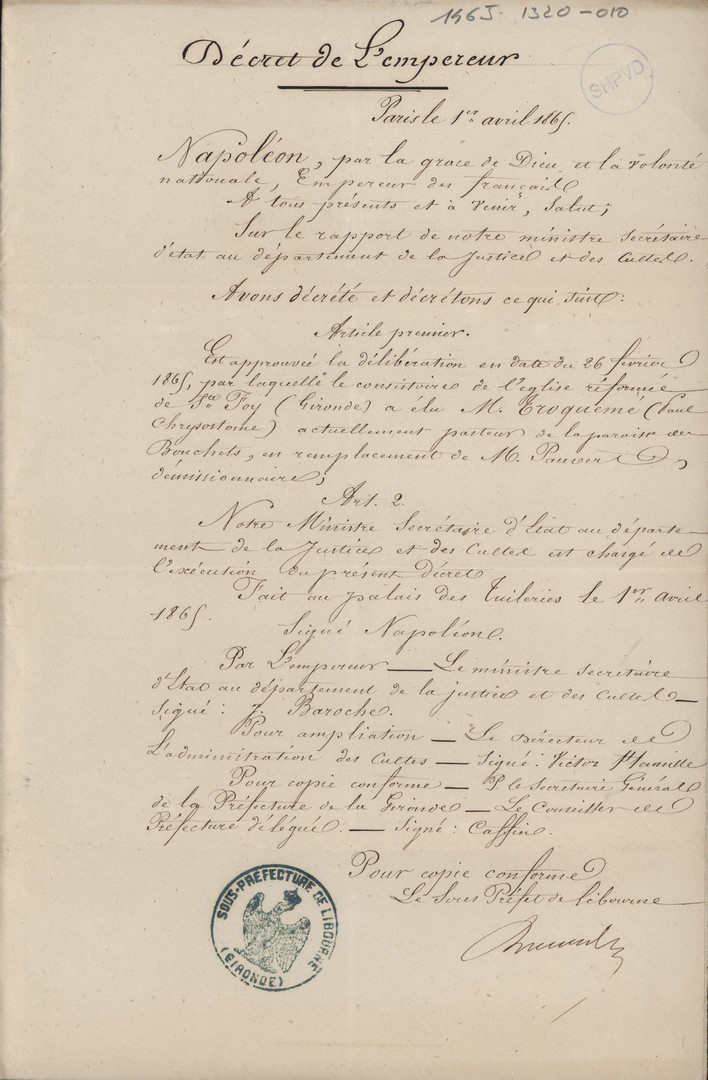 146J- 1320-010
Décret de L'empereur
SHPVD
Paris le 1er avril 1865.
Napoléon, par la grace de Dieu et la volonté
nationale, Empereur des français
A tous présents et à venir, Salut;
Sur le rapport de notre ministre secrétaire
d'état au département de la Justice et des Cultes.
Avons décrété et décrétons ce qui suit:
Article premier.
Est approuvée la délibération en date du 26 février
1865, par laquelle le consistoire de l'église réformée
de Ste Foy (Gironde) a élu M. Troquemé (Paul
Chrysostome) actuellement pasteur de la paroisse de
Bouchets, en remplacement de M. Pauvert,
démissionnaire;
Art. 2.
Notre Ministre Secrétaire d'Etat au départe-
ment de la Justice et des Cultes est chargé de
l'exécution du présent Décret
Fait au palais des Tuileries le 1er avril
1865.
Signé Napoléon.
Par L'empereur — Le ministre secrétaire
d'Etat au département de la justice et des Cultes —
Signé: J. Baroche.
Pour ampliation — Le Directeur de
L'administration des Cultes — Signé: Victor Hamille
Pour copie conforme — P. le Secrétaire Général
de la Préfecture de la Gironde — Le Conseiller de
Préfecture délégué. — Signé: Caffin.
Pour copie conforme
Le Sous Préfet de Libourne
SOUS-PREFECTURE DE LIBOURNE
(GIRONDE)